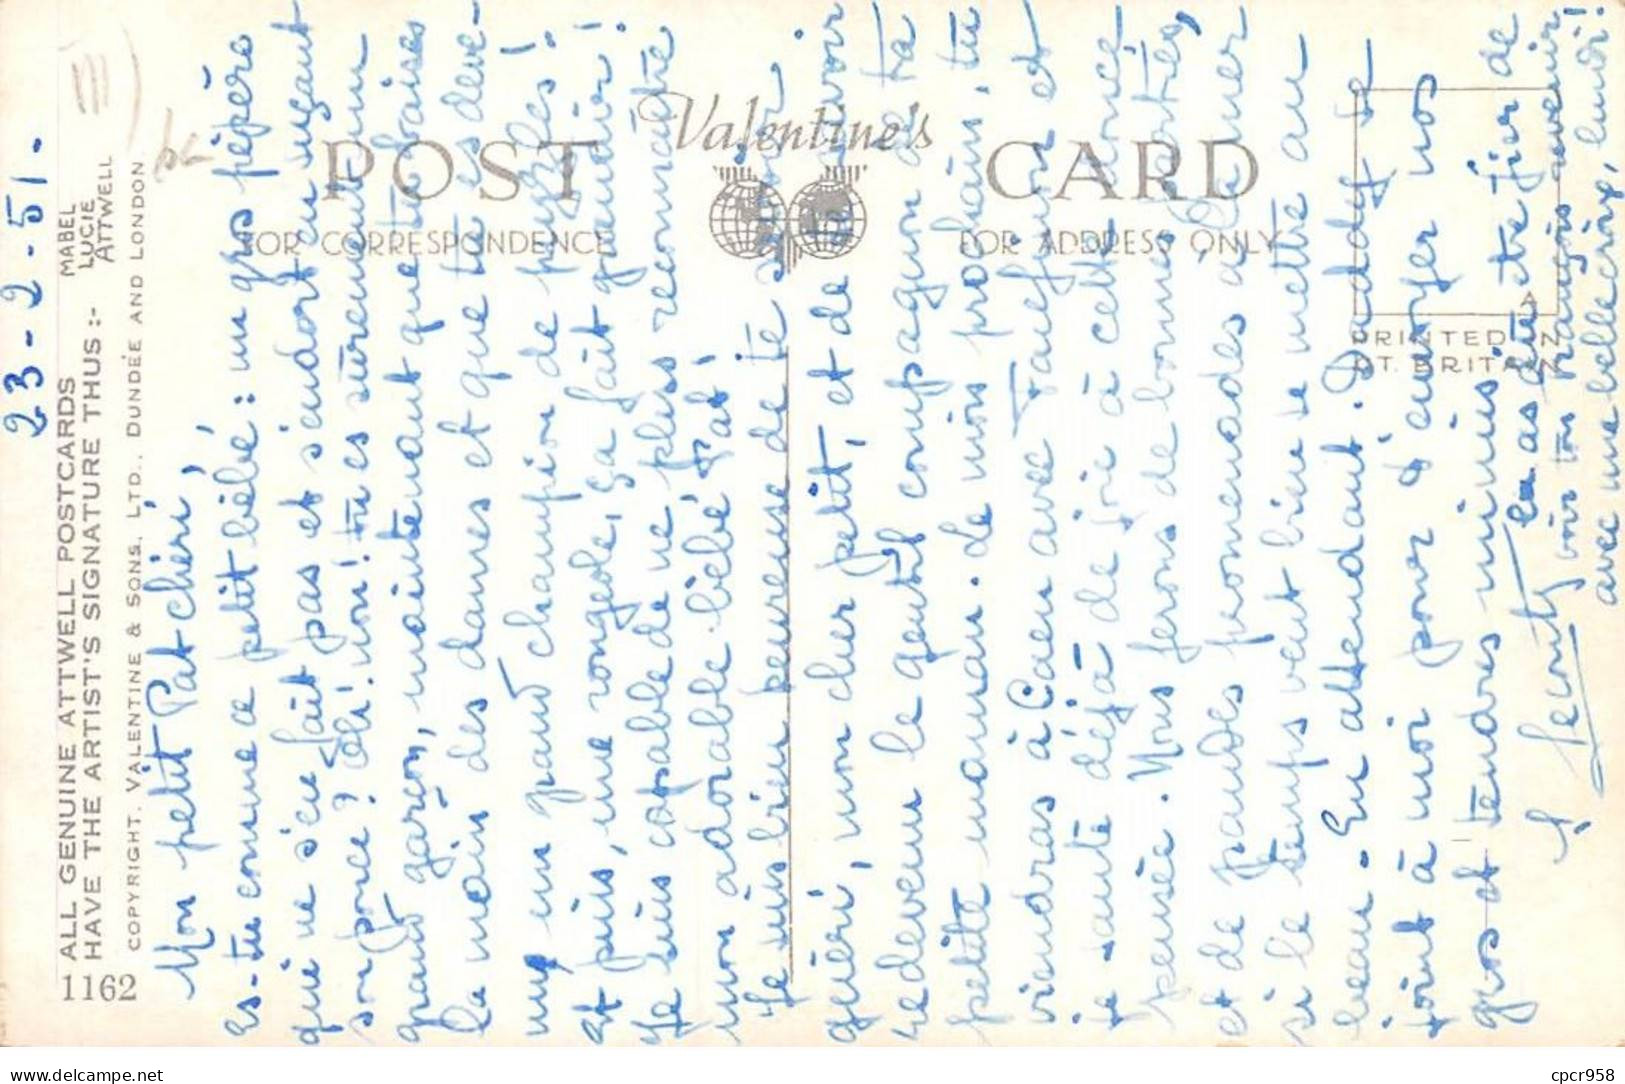 23-2-51.
ALL GENUINE ATTWELL POSTCARDS
HAVE THE ARTIST'S SIGNATURE THUS :-
MABEL
LUCIE
ATTWELL
COPYRIGHT. VALENTINE & SONS, LTD., DUNDEE AND LONDON
1162
Valentine's
POST CARD
FOR CORRESPONDENCE
FOR ADDRESS ONLY
PRINTED IN
GT. BRITAIN
Mon petit Pat chéri,
Es-tu comme ce petit bébé : un gros pépère
qui ne s'en fait pas et s'endort en suçant
son pouce ? Oh ! non ! tu es sûrement un
grand garçon, maintenant que tu baises
la main des dames et que tu es deve-
nu un grand champion de puzzles !
Et puis, une rougeole, ça fait grandir !
Je suis capable de ne plus reconnaître
mon adorable bébé Pat !
Je suis bien heureuse de te savoir
guéri, mon cher petit, et de te savoir
redevenu le gentil compagnon de ta
petite maman. Le mois prochain, tu
viendras à Caen avec Tanefum et
je saute déjà de joie à cette douce
pensée. Nous ferons de bonnes parties,
et de grandes promenades à la mer
si le temps veut bien se mettre au
beau. En attendant, Daddy se
joint à moi pour t'envoyer nos
gros et tendres mimis
tu as dû être fier de
voir ton François revenir
avec une belle croix, lundi !